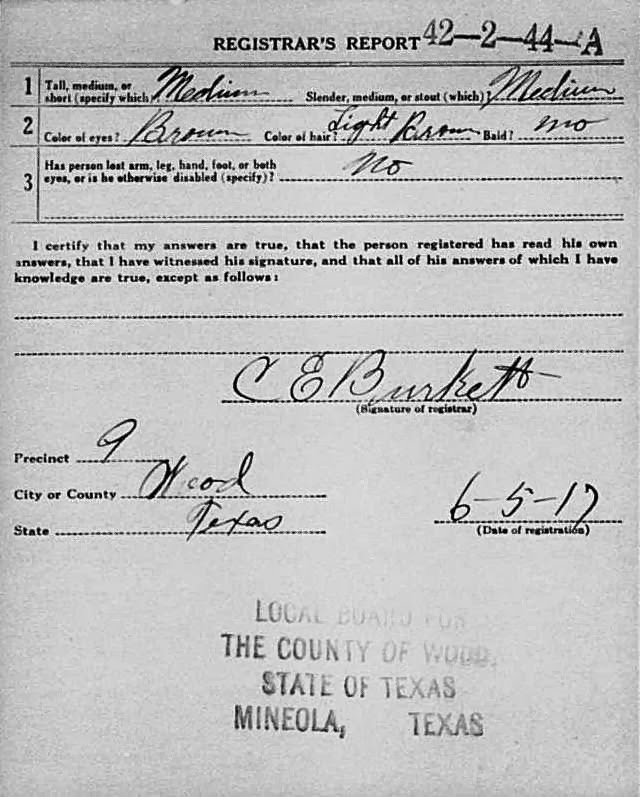 REGISTRAR'S REPORT 42-2-44-A
1 Tall, medium, or short (specify which) Medium Slender, medium, or stout (which)? Medium
2 Color of eyes? Brown Color of hair? Light Brown Bald? no
3 Has person lost arm, leg, hand, foot, or both
eyes, or is he otherwise disabled (specify)? No
I certify that my answers are true, that the person registered has read his own
answers, that I have witnessed his signature, and that all of his answers of which I have
knowledge are true, except as follows:
C E Burkett
(Signature of registrar)
Precinct 9
City or County Wood
State Texas
6-5-17
(Date of registration)
LOCAL BOARD FOR
THE COUNTY OF WOOD,
STATE OF TEXAS
MINEOLA, TEXAS